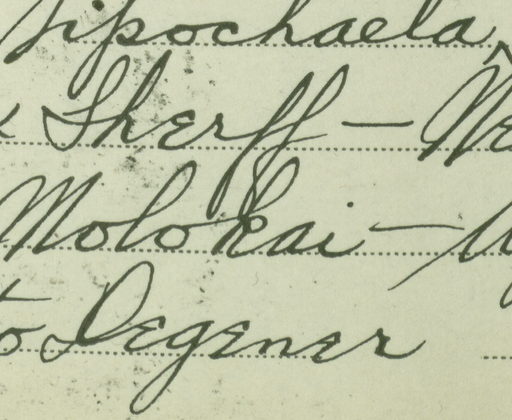 Lipochaeta
Sherff —
Molokai —
to Degener